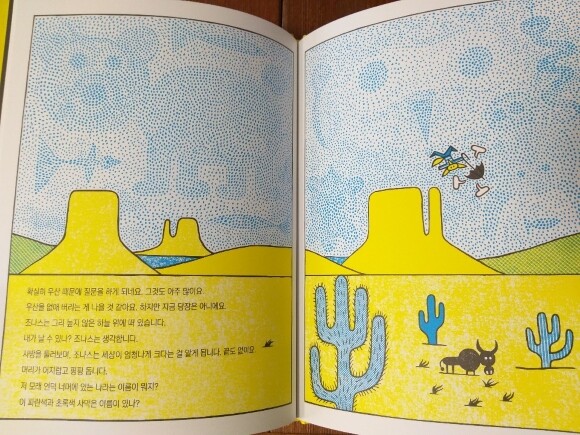 확실히 우산 때문에 질문을 하게 되네요. 그것도 아주 많이요.
우산을 없애 버리는 게 나을 것 같아요. 하지만 지금 당장은 아니에요.
조나스는 그리 높지 않은 하늘 위에 떠 있습니다.
내가 날 수 있나? 조나스는 생각합니다.
사방을 둘러보며, 조나스는 세상이 엄청나게 크다는 걸 알게 됩니다. 끝도 없이요
머리가 어지럽고 핑핑 돕니다.
저 모래 언덕 너머에 있는 나라는 이름이 뭐지?
이 파란색과 초록색 사막은 이름이 있나?